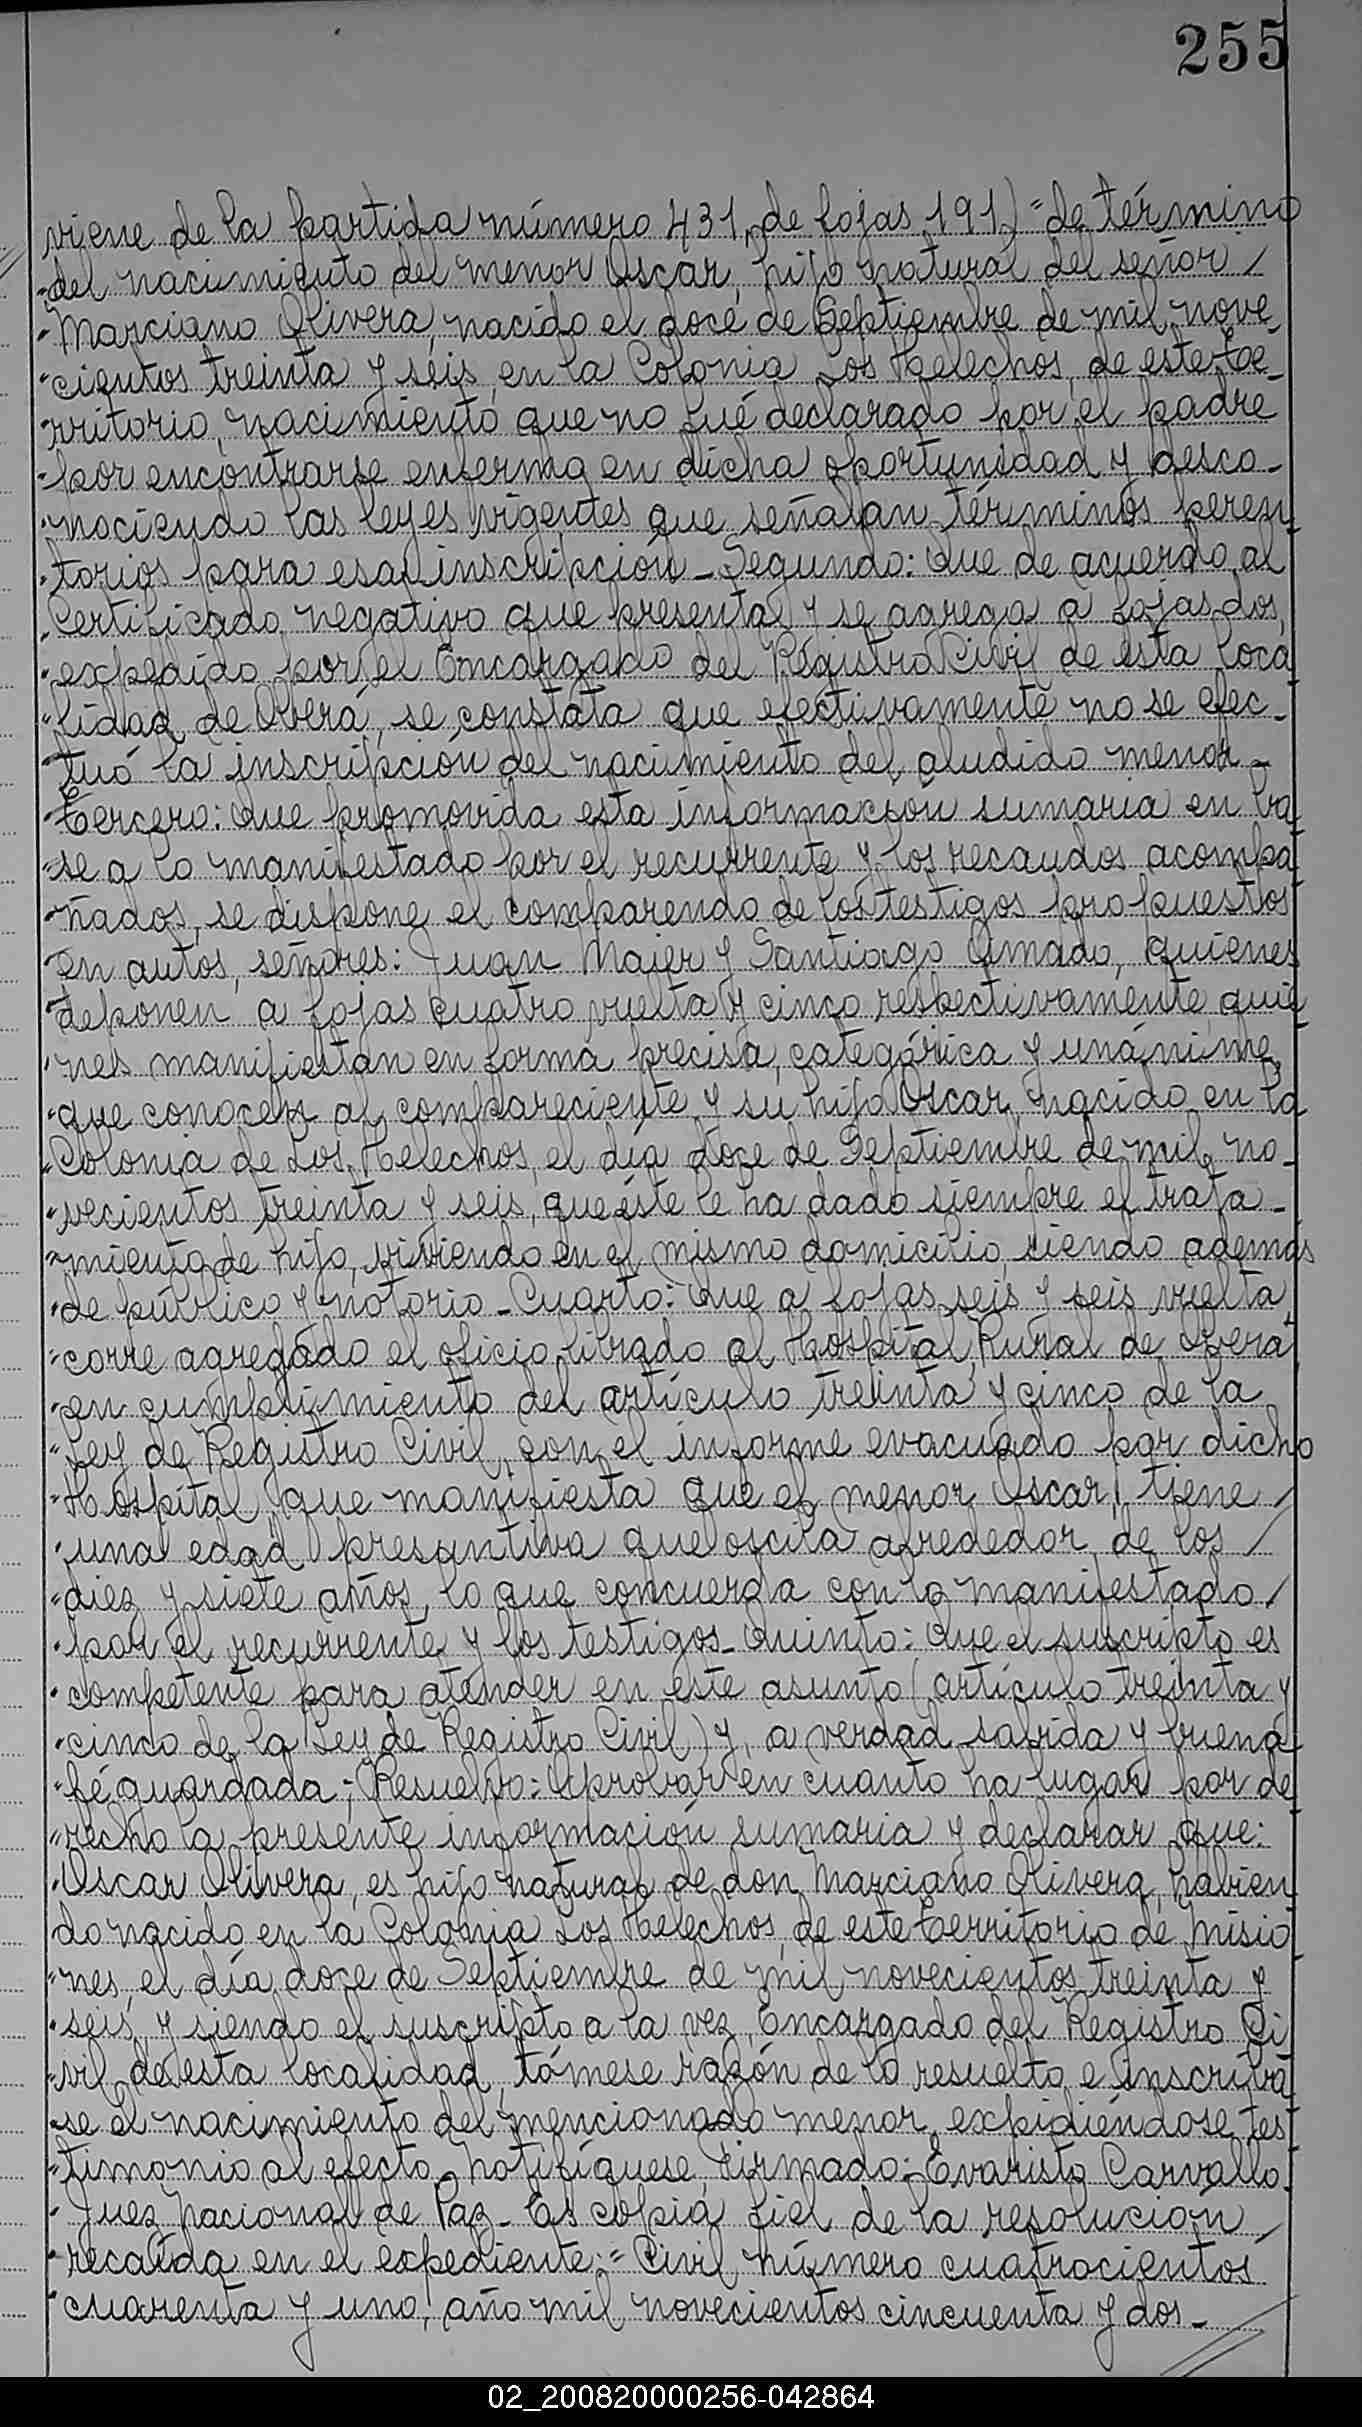 255
viene de la partida número 431, de fojas 191) "de término
"del nacimiento del menor Oscar, hijo natural del señor /
"Marciano Olivera, nacido el doce de Septiembre de mil nove_
"cientos treinta y séis, en la Colonia Los Helechos, de este Te_
"rritorio, nacimiento que no fué declarado por el padre
"por encontrarse enferma en dicha oportunidad y desco_
"nociendo las leyes vigentes que señalan términos peren
"torios para esa inscripción_ Segundo: Que de acuerdo al
"Certificado negativo que presenta y se agrega a fojas dos,
"expedido por el Encargado del Registro Civil de esta loca
"lidad de Oberá, se constata que efectivamente no se efec_
"tuó la inscripción del nacimiento del aludido menor_
"Tercero: Que promovida esta información sumaria en ba
"se a lo manifestado por el recurrente y los recaudos acompa
"ñados, se dispone el comparendo de los testigos propuestos
"en autos, señores: Juan Maier y Santiago Amado, quienes
"deponen a fojas cuatro vuelta y cinco respectivamente, quie
"nes manifiestan en forma precisa, categórica y unánime,
"que conocen al compareciente y su hijo Oscar, nacido en la
"Colonia de Los Helechos, el día doce de Septiembre de mil no_
"vecientos treinta y seis, que éste le ha dado siempre el trata_
"miento de hijo, viviendo en el mismo domicilio, siendo además
"de público y notorio_ Cuarto: Que a fojas seis y seis vuelta,
"corre agregado el oficio librado al Hospital Rural de Oberá
"en cumplimiento del artículo treinta y cinco de la
"Ley de Registro Civil, con el informe evacuado por dicho
"Hospital, que manifiesta que el menor Oscar, tiene /
"una edad presuntiva que oscila alrededor de los /
"diez y siete años, lo que concuerda con lo manifestado /
"por el recurrente y los testigos_ Quinto: Que el suscripto es
"competente para atender en este asunto (artículo treinta y
"cinco de la Ley de Registro Civil) y, a verdad sabida y buena
"fé guardada; Resuelvo: Aprobar en cuanto ha lugar por de
"recho la presente información sumaria y declarar que:
"Oscar Olivera, es hijo natural de don Marciano Olivera, habien
do nacido en la Colonia Los Helechos, de este Territorio de Misio
"nes, el día doce de Septiembre de mil novecientos treinta y
"seis, y siendo el suscripto a la vez, Encargado del Registro Ci
"vil de esta localidad, tómese razón de lo resuelto e inscriba
"se el nacimiento del mencionado menor, expidiéndose tes
"timonio al efecto. Notifíquese. Firmado: Evaristo Carvallo.
"Juez Nacional de Paz_ Es copia fiel de la resolución /
"recaída en el expediente:= Civil número cuatrocientos
"cuarenta y uno, año mil novecientos cincuenta y dos_
02_200820000256-042864